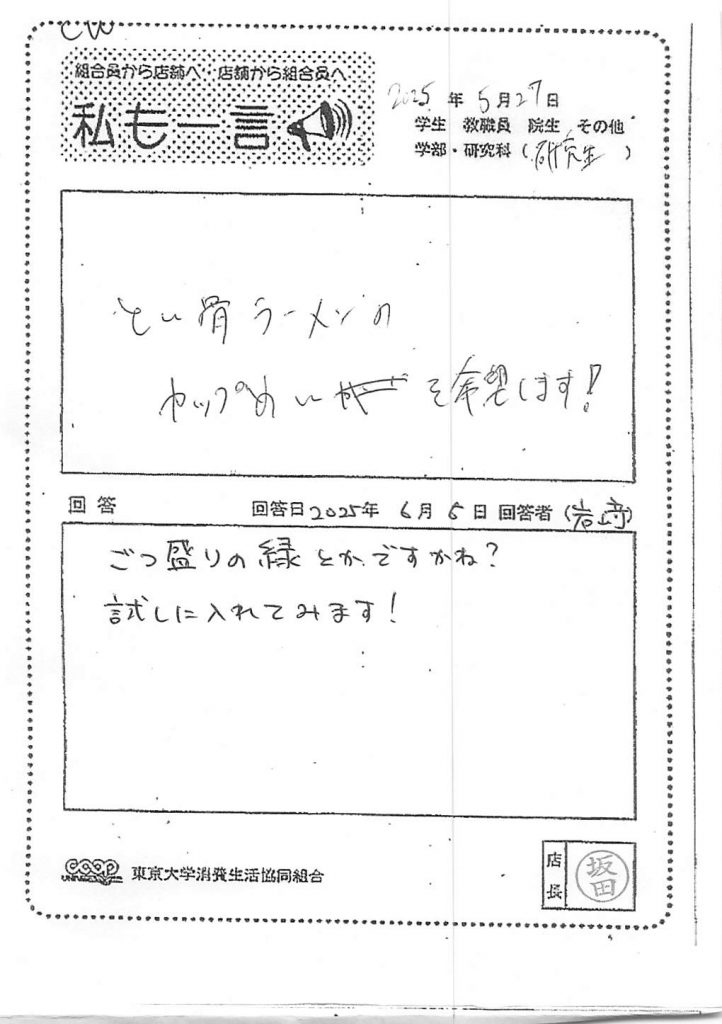 CW
組合員から店舗へ 店舗から組合員へ
私も一言
2025年5月27日
学生 教職員 院生 その他
学部・研究科(研究生)
とん骨ラーメンの
カップめんを希望します!
回答
回答日2025年6月5日 回答者(岩崎)
ごつ盛りの緑とかですかね?
試しに入れてみます!
coop
東京大学消費生活協同組合
店長
坂田